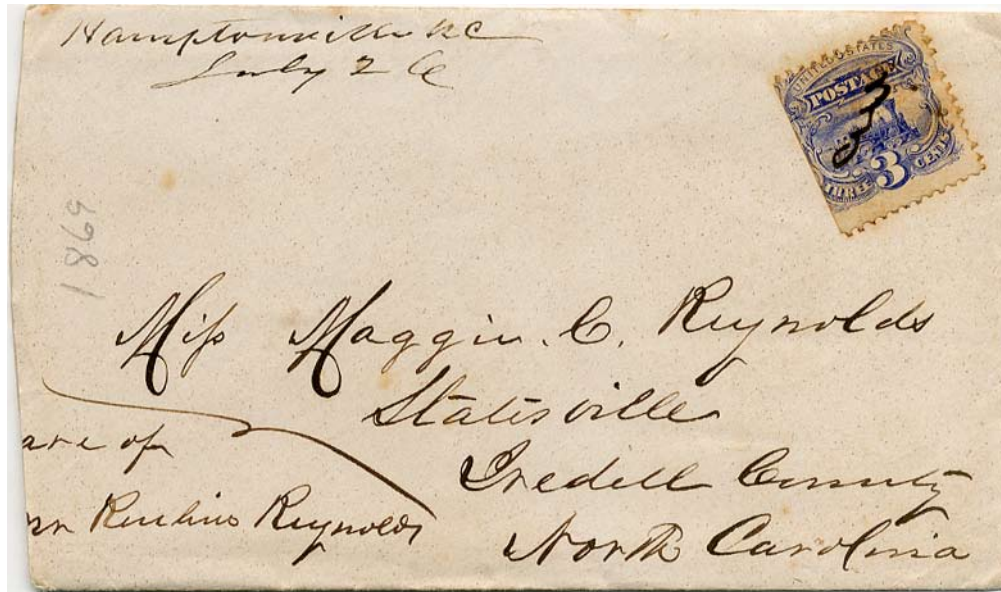 Hamptonville NC
July 26
UNITED STATES
POSTAGE
THREE 3 CENTS
1869
Miss Maggie. C. Reynolds
Statesville
Iredell County
North Carolina
are of
Reynolds